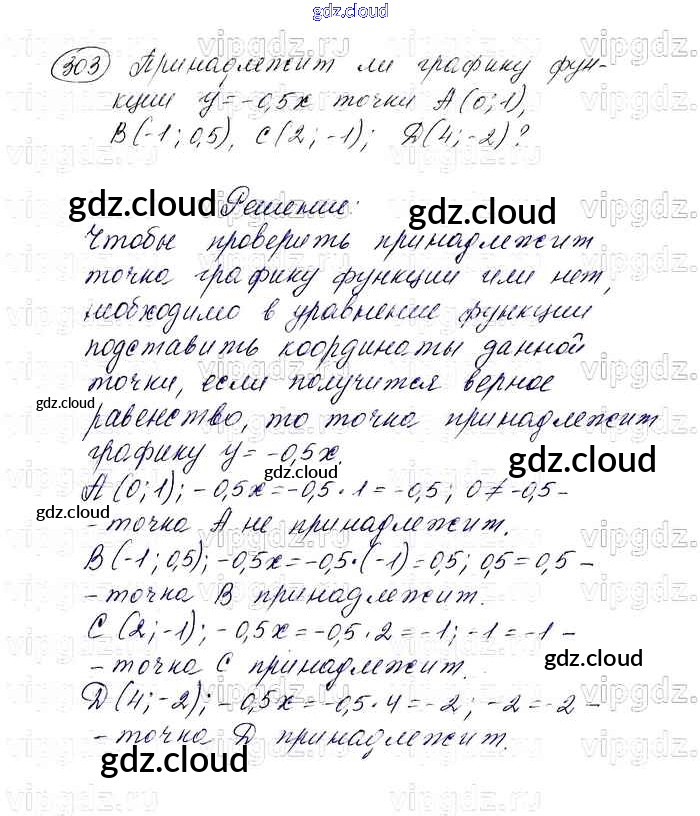 gdz.cloud
303 Принадлежит ли графику фун-
кции y = -0,5x точки A(0;1),
B(-1; 0,5), C(2; -1); D(4; -2)?
gdz.cloud Решение: gdz.cloud
Чтобы проверить принадлежит
точка графику функции или нет,
необходимо в уравнение функции
подставить координаты данной
точки, если получится верное
gdz.cloud
равенство, то точка принадлежит
графику y = -0,5x. gdz.cloud
gdz.cloud
A(0; 1); -0,5x = -0,5 · 1 = -0,5; 0 ≠ -0,5 -
gdz.cloud
- точка A не принадлежит.
B(-1; 0,5); -0,5x = -0,5 · (-1) = 0,5; 0,5 = 0,5 -
- точка B принадлежит.
C(2; -1); -0,5x = -0,5 · 2 = -1; -1 = -1 -
- точка C принадлежит. gdz.cloud
D(4; -2); -0,5x = -0,5 · 4 = -2; -2 = -2 -
- точка D принадлежит.
gdz.cloud gdz.cloud
vipgdz.ru